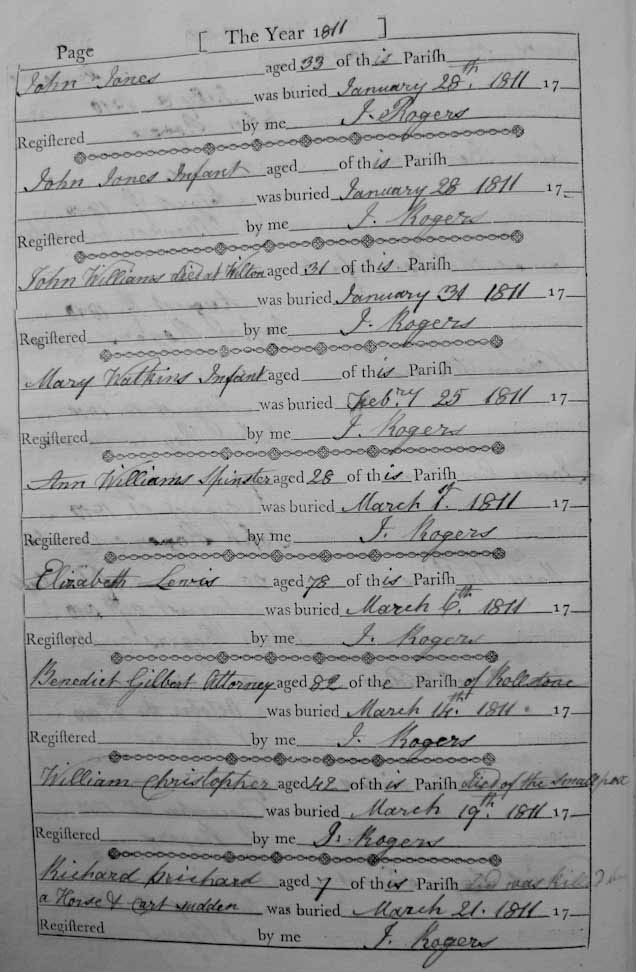 Page [ The Year 1811 ]
John Jones aged 33 of this Pariſh
was buried January 28th. 1811 17
Regiſtered by me J. Rogers
John Jones Infant aged of this Pariſh
was buried January 28 1811 17
Regiſtered by me J. Rogers
John Williams died at Wilton aged 31 of this Pariſh
was buried January 31 1811 17
Regiſtered by me J. Rogers
Mary Watkins Infant aged of this Pariſh
was buried Febry 25 1811 17
Regiſtered by me J. Rogers
Ann Williams Spinster aged 28 of this Pariſh
was buried March 1811 17
Regiſtered by me J. Rogers
Elizabeth Lewis aged 78 of this Pariſh
was buried March 6th. 1811 17
Regiſtered by me J. Rogers
Benedict Gilbert Attorney aged 82 of the Pariſh of
was buried March 14th. 1811 17
Regiſtered by me J. Rogers
William Christopher aged 42 of this Pariſh died of the small pox
was buried March 19th. 1811 17
Regiſtered by me J. Rogers
Richard Prichard aged 7 of this Pariſh was
a Horse & Cart sudden was buried March 21. 1811 17
Regiſtered by me J. Rogers